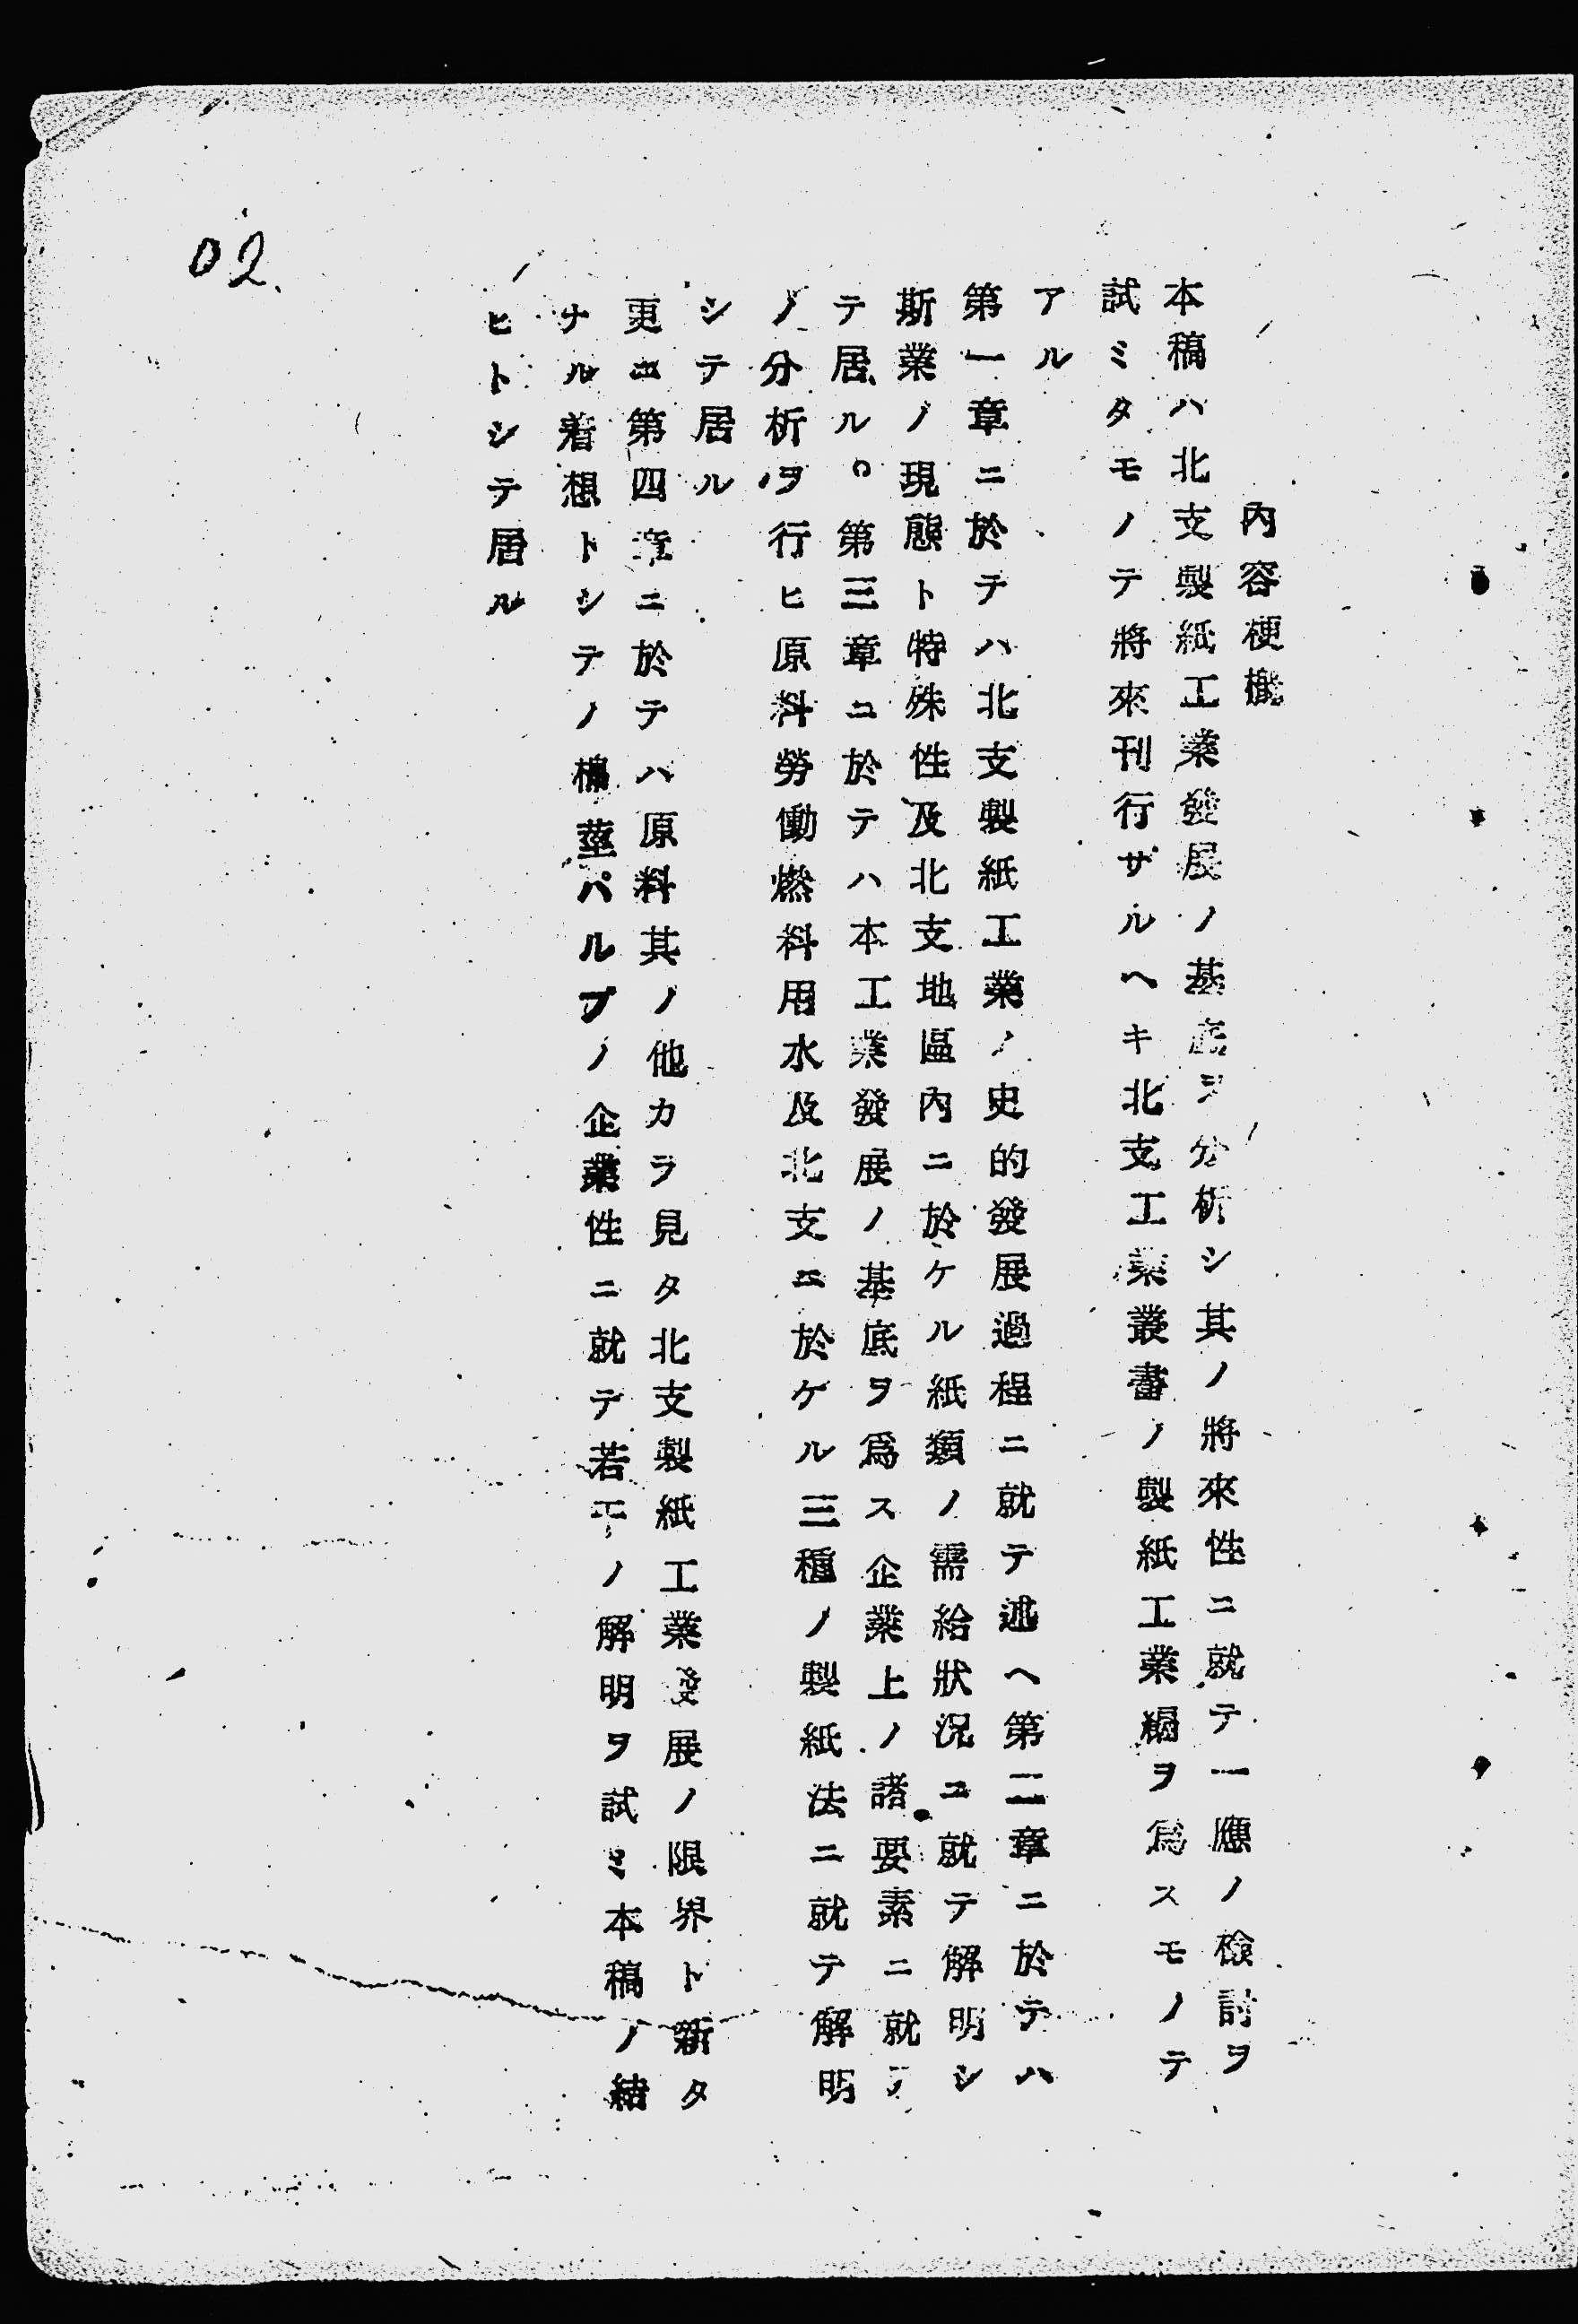 內容梗槪
本稿ハ北支製紙工業發展ノ基底ヲ分析シ其ノ將來性ニ就テ一應ノ檢討ヲ
試ミタモノテ將來刊行サルヘキ北支工業叢書ノ製紙工業編ヲ爲スモノテ
アル
第一章ニ於テハ北支製紙工業ノ史的發展過程ニ就テ述ヘ第二章ニ於テハ
斯業ノ現態ト特殊性及北支地區內ニ於ケル紙類ノ需給狀況ニ就テ解明シ
テ居ル。第三章ニ於テハ本工業發展ノ基底ヲ爲ス企業上ノ諸要素ニ就テ
ノ分析ヲ行ヒ原料勞働燃料用水及北支ニ於ケル三種ノ製紙法ニ就テ解明
シテ居ル
更ニ第四章ニ於テハ原料其ノ他カラ見タ北支製紙工業發展ノ限界ト新タ
ナル着想トシテノ棉莖パルプノ企業性ニ就テ若干ノ解明ヲ試ミ本稿ノ結
ヒトシテ居ル
02.